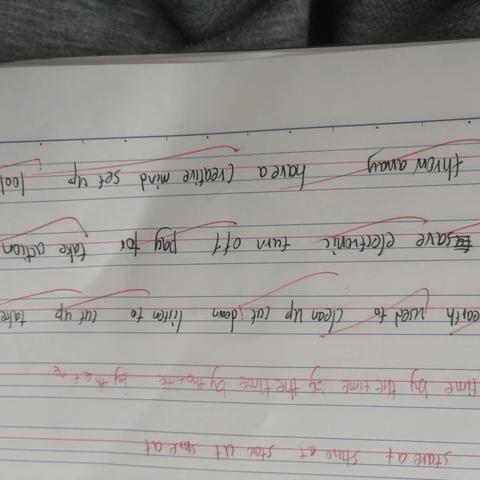 stare at stare at stare at stare at
time by the time by the time by the time by the time
earth used to clean up cut down listen to cut up take
save electronic turn off pay for take action
throw away have a creative mind set up look